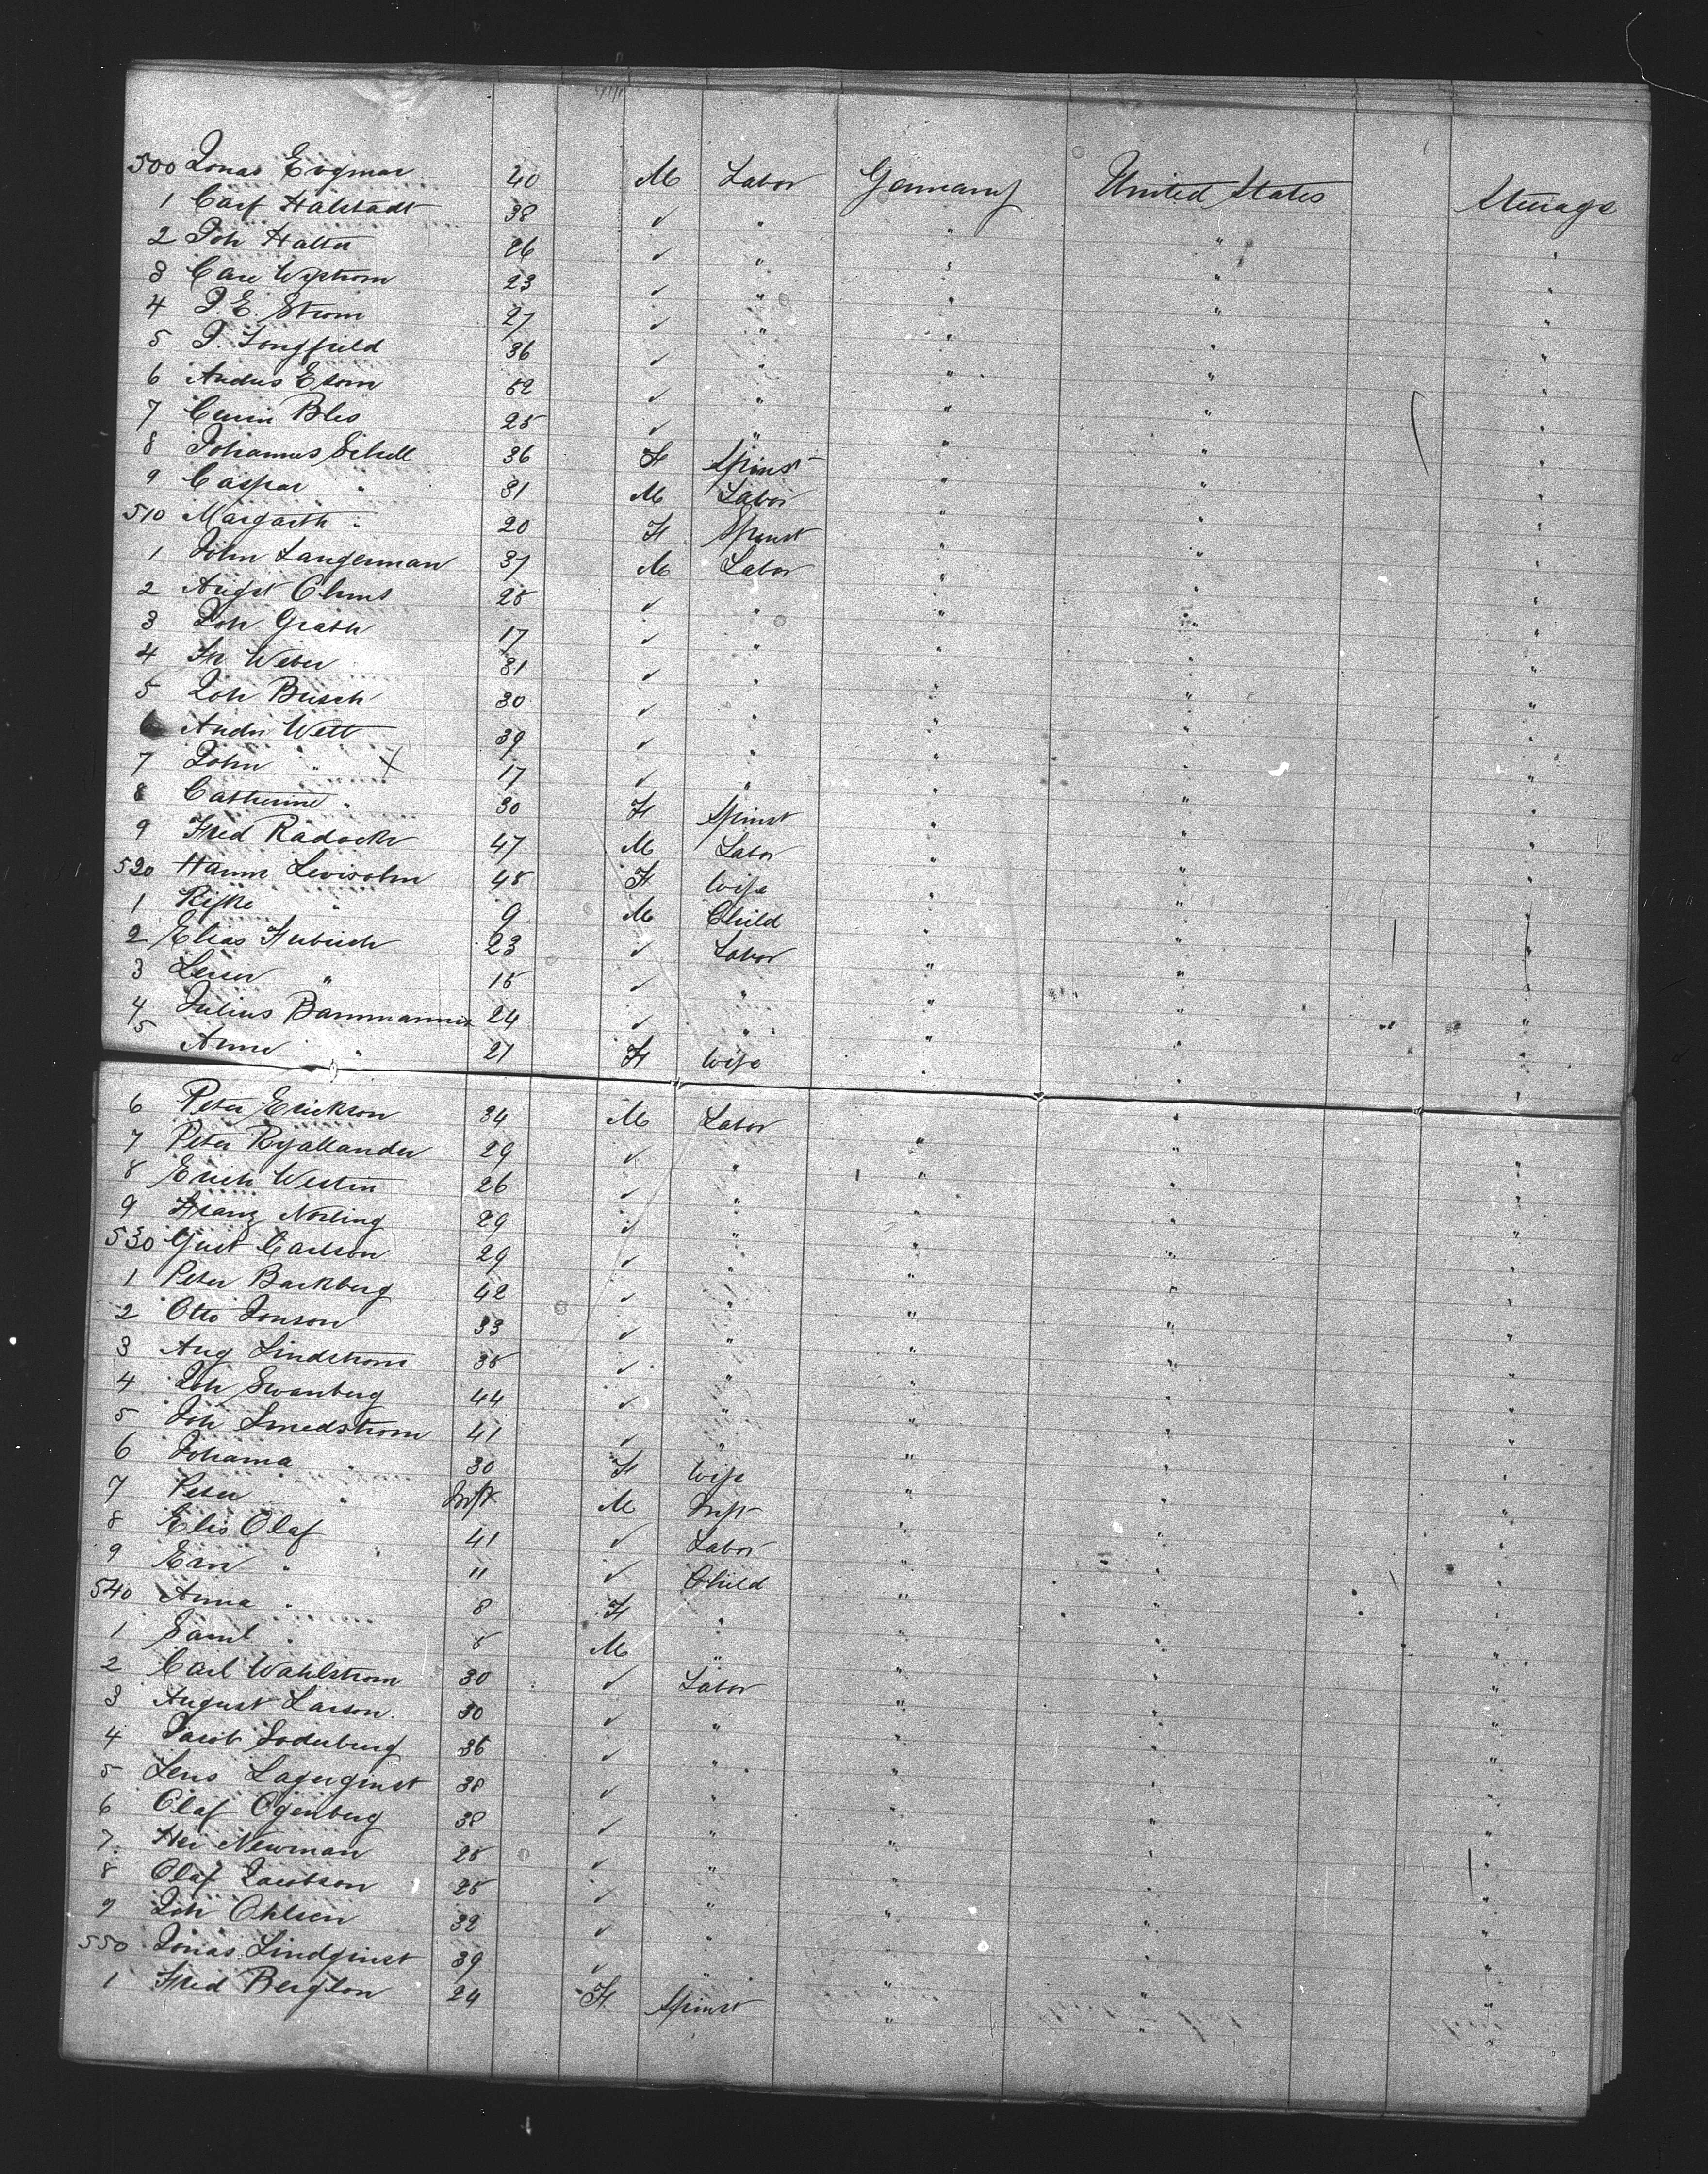 500 Jonas Engman 40 M Labor Germany United States Steerage
1 Carl Halstadt 38 ✓ " " " "
2 Joh Halter 26 ✓ " " " "
3 Care Wystrom 23 ✓ " " " "
4 J. E. Strom 27 ✓ " " " "
5 J Longfield 36 ✓ " " " "
6 Andres Ekom 52 ✓ " " " "
7 Bles 25 ✓ " " " "
8 Johannes Schell 36 F Spinst " " "
9 Caspar " 31 M Labor " " "
510 Margarth " 20 F Spinst " " "
1 John Langerman 37 M Labor " " "
2 Augst 25 ✓ " " " "
3 Joh Grath 17 ✓ " " " "
4 Fr Weber 31 ✓ " " " "
5 Joh Busch 30 ✓ " " " "
6 Andr Wett 39 ✓ " " " "
7 John " X 17 ✓ " " " "
8 Catherine " 30 F Spinst " " "
9 Fred Radocks 47 M Labor " " "
520 Hanne Levisohn 48 F Wife " " "
1 Rifke " 9 M Child " " "
2 Elias Hubrich 23 ✓ Labor " " "
3 Leser " 15 ✓ " " " "
4 Julius Bammanns 24 ✓ " " " "
5 Anne " 21 F Wife " " "
6 Peter Erickson 34 M Labor " " "
7 Peter Ryallander 29 ✓ " " " "
8 Erich Westin 26 ✓ " " " "
9 Franz Norling 29 ✓ " " " "
530 Gust Carlson 29 ✓ " " " "
1 Peter Backberg 42 ✓ " " " "
2 Otto Jonson 33 ✓ " " " "
3 Aug Lindstrom 35 ✓ " " " "
4 Joh Swanberg 44 ✓ " " " "
5 Joh Smedstrom 41 ✓ " " " "
6 Johanna " 30 F Wife " " "
7 Peter " Inft M Inft " " "
8 Elis Olaf 41 ✓ Labor " " "
9 Ean " 11 ✓ Child " " "
540 Anna " 8 F " " " "
1 Saml " 5 M " " " "
2 Carl Wahlstrom 30 ✓ Labor " " "
3 August Larson 30 ✓ " " " "
4 Jacob Soderberg 36 ✓ " " " "
5 Lens Lagerquist 38 ✓ " " " "
6 Olaf Ogenberg 38 ✓ " " " "
7 Her Newman 25 ✓ " " " "
8 Olaf Jacobson 25 ✓ " " " "
9 Joh Ohlsen 32 ✓ " " " "
550 Jonas Lindquist 39 ✓ " " " "
1 Fred Bergson 24 F Spinst " " "